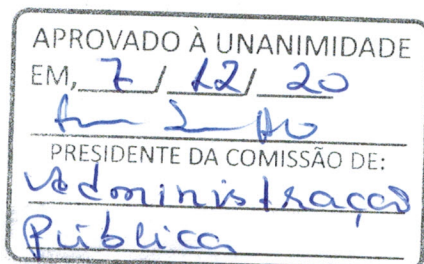 APROVADO À UNANIMIDADE
EM, 7 / 12 / 20
PRESIDENTE DA COMISSÃO DE:
Administração
Pública